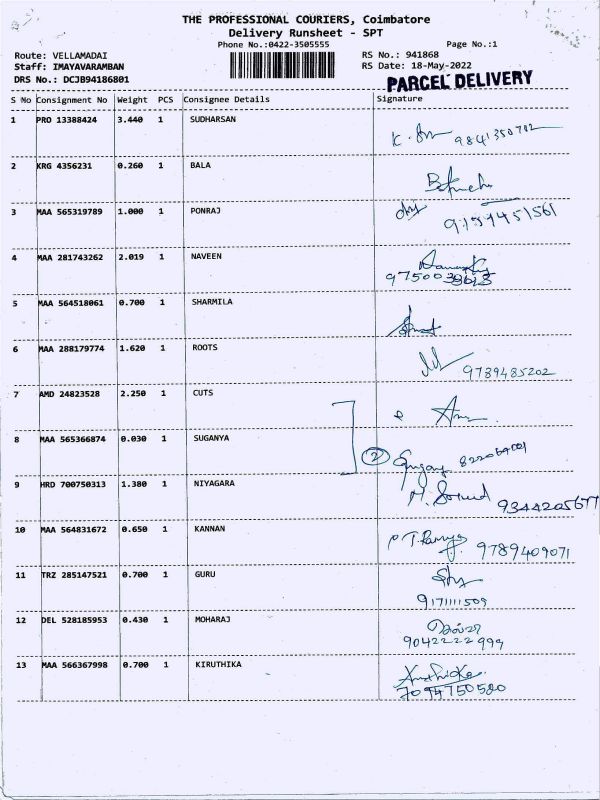 THE PROFESSIONAL COURIERS, Coimbatore
Delivery Runsheet - SPT
Phone No.:0422-3505555
Page No.:1
Route: VELLAMADAI
RS No.: 941868
Staff: IMAYAVARAMBAN
RS Date: 18-May-2022
DRS No.: DCJB94186801
PARCEL DELIVERY
S No Consignment No Weight PCS Consignee Details Signature
1 PRO 13388424 3.440 1 SUDHARSAN
9841350702
2 KRG 4356231 0.260 1 BALA
3 MAA 565319789 1.000 1 PONRAJ
9159451561
4 MAA 281743262 2.019 1 NAVEEN
5 MAA 564518061 0.700 1 SHARMILA
6 MAA 288179774 1.620 1 ROOTS
9789485202
7 AMD 24823528 2.250 1 CUTS
8 MAA 565366874 0.030 1 SUGANYA
2
9 HRD 700750313 1.380 1 NIYAGARA
9344205677
10 MAA 564831672 0.650 1 KANNAN
9789409071
11 TRZ 285147521 0.700 1 GURU
9171111509
12 DEL 528185953 0.430 1 MOHARAJ
9042222999
13 MAA 566367998 0.700 1 KIRUTHIKA
7094750580